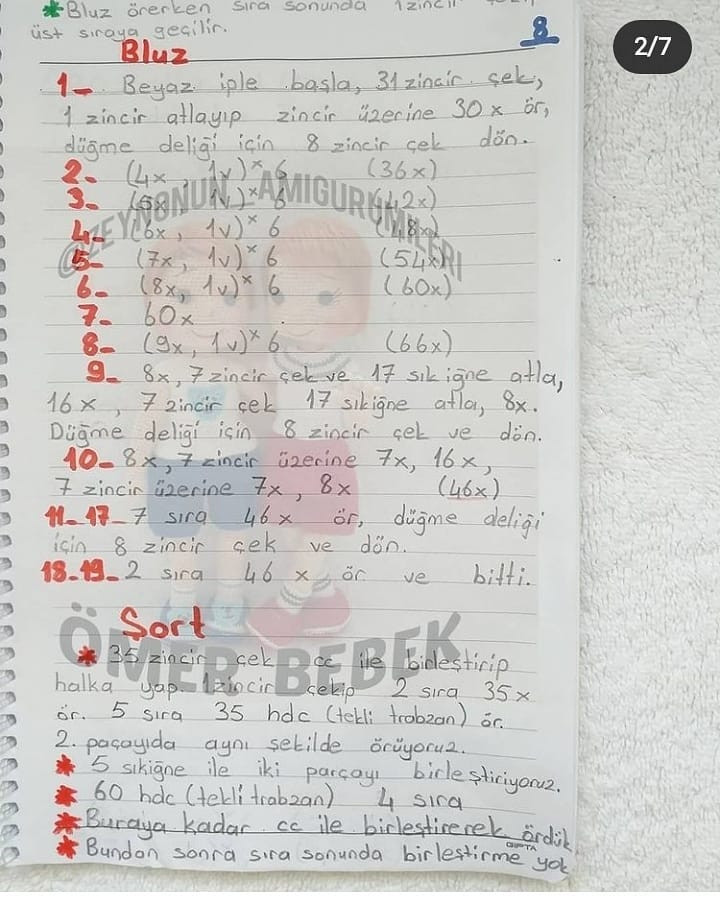 *Bluz örerken sıra sonunda 1zincir
üst sıraya geçilir.
8
2/7
Bluz
1- Beyaz iple başla, 31 zincir çek,
1 zincir atlayıp zincir üzerine 30 x ör,
düğme deliği için 8 zincir çek dön.
2- (4x, 1v)* 6 (36x)
3- (5x, 1v)* 6 (42x)
4- (6x, 1v)* 6 (48x)
5- (7x, 1v)* 6 (54x)
6- (8x, 1v)* 6 (60x)
7- 60x
8- (9x, 1v)* 6 (66x)
9- 8x, 7 zincir çek ve 17 sık iğne atla,
16x, 7 zincir çek 17 sıkiğne atla, 8x.
Düğme deliği için 8 zincir çek ve dön.
10- 8x, 7 zincir üzerine 7x, 16x,
7 zincir üzerine 7x, 8x (46x)
11-17- 7 sıra 46x ör, düğme deliği
için 8 zincir çek ve dön.
18-19- 2 sıra 46 x ör ve bitti.
@ZEYNONUN_AMIGURUMILERI
Şort
ÖMER BEBEK
* 35 zincir çek cc ile birleştirip
halka yap. 1zincir çekip 2 sıra 35x
ör. 5 sıra 35 hdc (tekli trabzan) ör.
2. paçayıda aynı şekilde örüyoruz.
* 5 sıkiğne ile iki parçayı birleştiriyoruz.
* 60 hdc (tekli trabzan) 4 sıra
* Buraya kadar cc ile birleştirerek ördük
* Bundan sonra sıra sonunda birleştirme yok